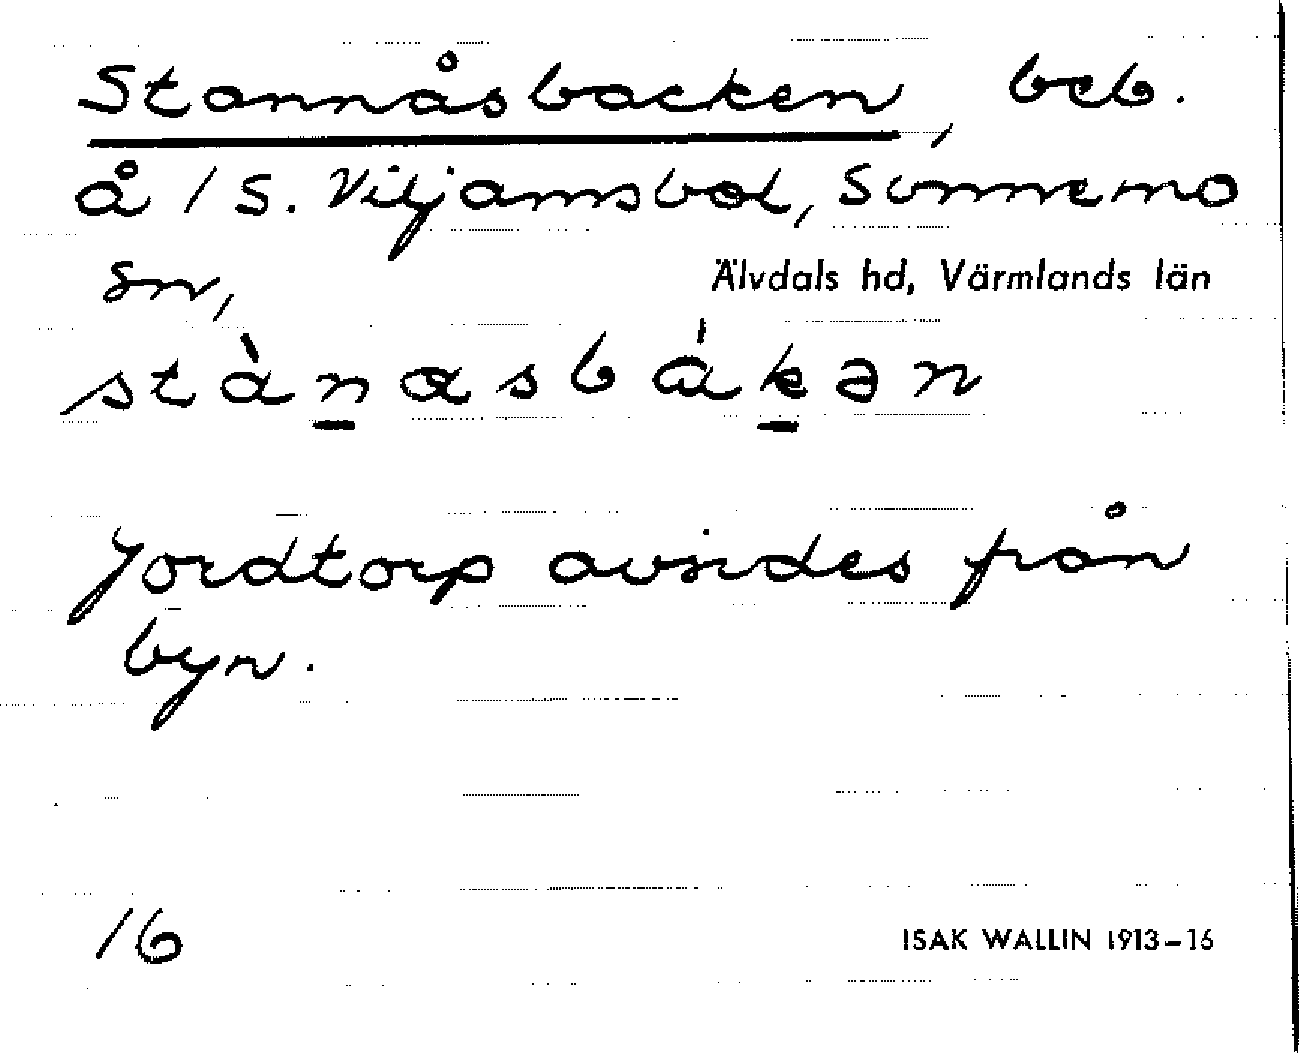 Stannåsbacken, beb.
å /S. Viljamsbol, Sunnemo
sn, Älvdals hd, Värmlands län
stànasbákən
Jordtorp avsides från
byn.
16 ISAK WALLIN 1913–16